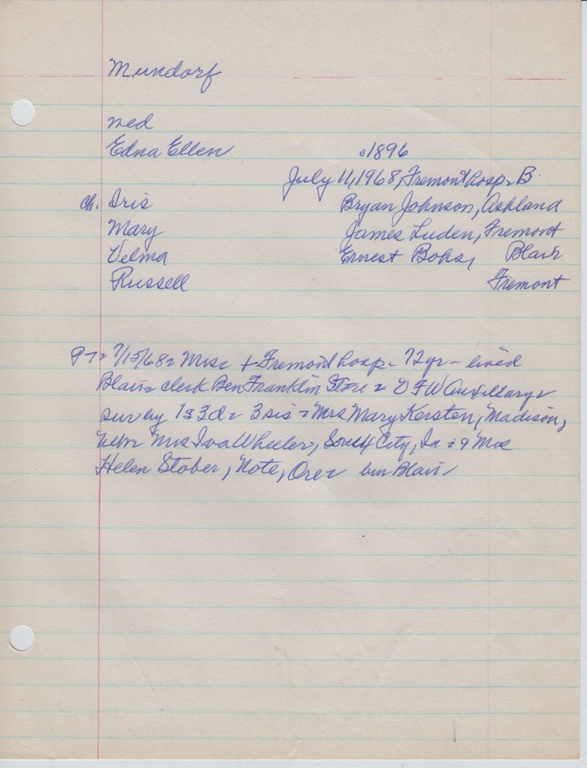 Mundorf
med
Edna Ellen c1896
July 11, 1968, Fremont hosp. B.
ch. Iris Bryan Johnson, Ashland
Mary James Luden, Fremont
Velma Ernest Bohs, Blair
Russell Fremont
P-T= 7/15/68= + Fremont hosp- 72yr - lived
Blair= clerk Ben Franklin Store = VFW Auxillary=
sur by 1s3d= 3 sis = Mrs Mary Kersten, Madison,
Nebr Mrs Iva Wheeler, Souix City, Ia = & Mrs
Helen Stober, Note, Ore= bur Blair